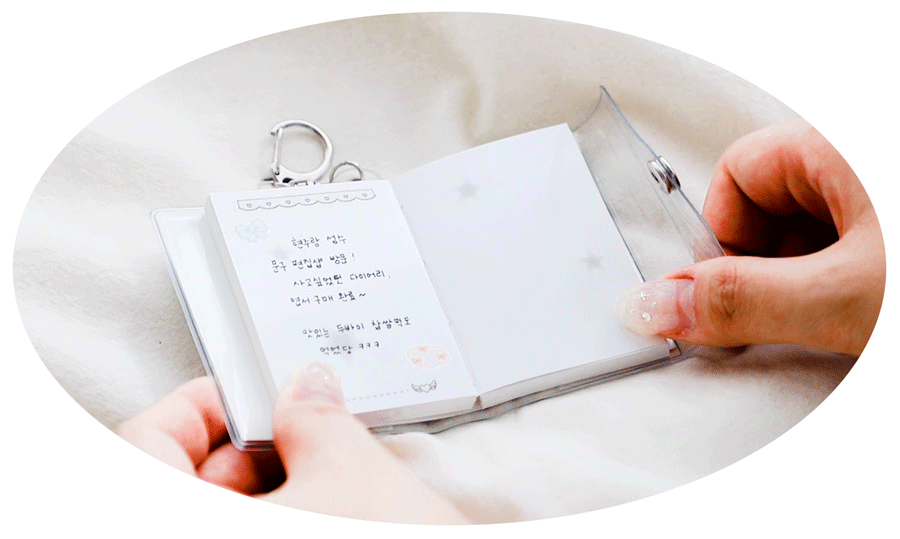 현주랑 성수
문구 편집샵 방문!
사고싶었던 다이어리,
엽서 구매 완료~
맛있는 두바이 찹쌀떡도
먹었당 ㅋㅋㅋ